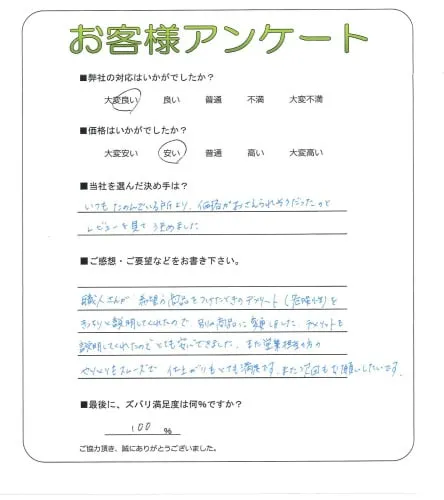 お客様アンケート
■弊社の対応はいかがでしたか？
大変良い 良い 普通 不満 大変不満
■価格はいかがでしたか？
大変安い 安い 普通 高い 大変高い
■当社を選んだ決め手は？
いつもたのんでいる所より、価格がおさえられそうだったのと
レビューを見てきめました
■ご感想・ご要望などをお書き下さい。
職人さんが希望の商品をつけたときのデメリット(危険性)を
きっちりと説明してくれたので、別の商品に変更しました。デメリットも
説明してくれたのでとても安心できました。また営業担当の方の
やりとりもスムーズで 仕上がりもとても満足です。また次回もお願いしたいです。
■最後に、ズバリ満足度は何%ですか？
100 %
ご協力頂き、誠にありがとうございました。